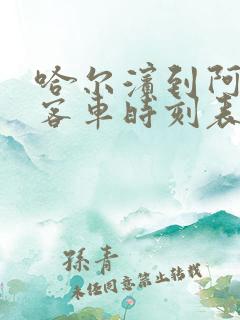 哈尔滨到阿
客车时刻表
孙青
未经同意禁止转载